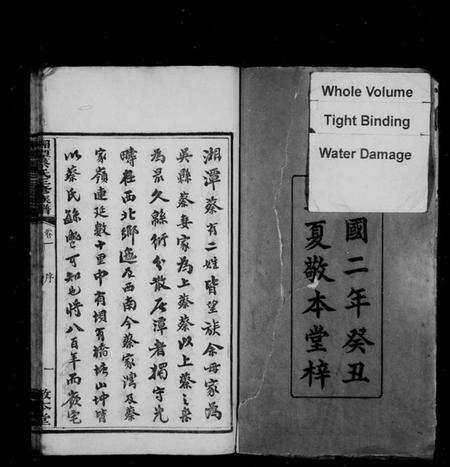 Whole Volume
Tight Binding
Water Damage
國二年癸丑
夏敬本堂梓
湘潭蔡有二姓皆望族余母家為
吳縣蔡妻家為上蔡蔡以上蔡之來
為最久緜衍分散居潭者獨守先
疇在西北鄉迤及西南今蔡家灣及蔡
家嶺連延數十里中有壩有橋塘山坤皆
以蔡氏繇
可知也將八百年而貲宅
卷一
序
一
敬本堂